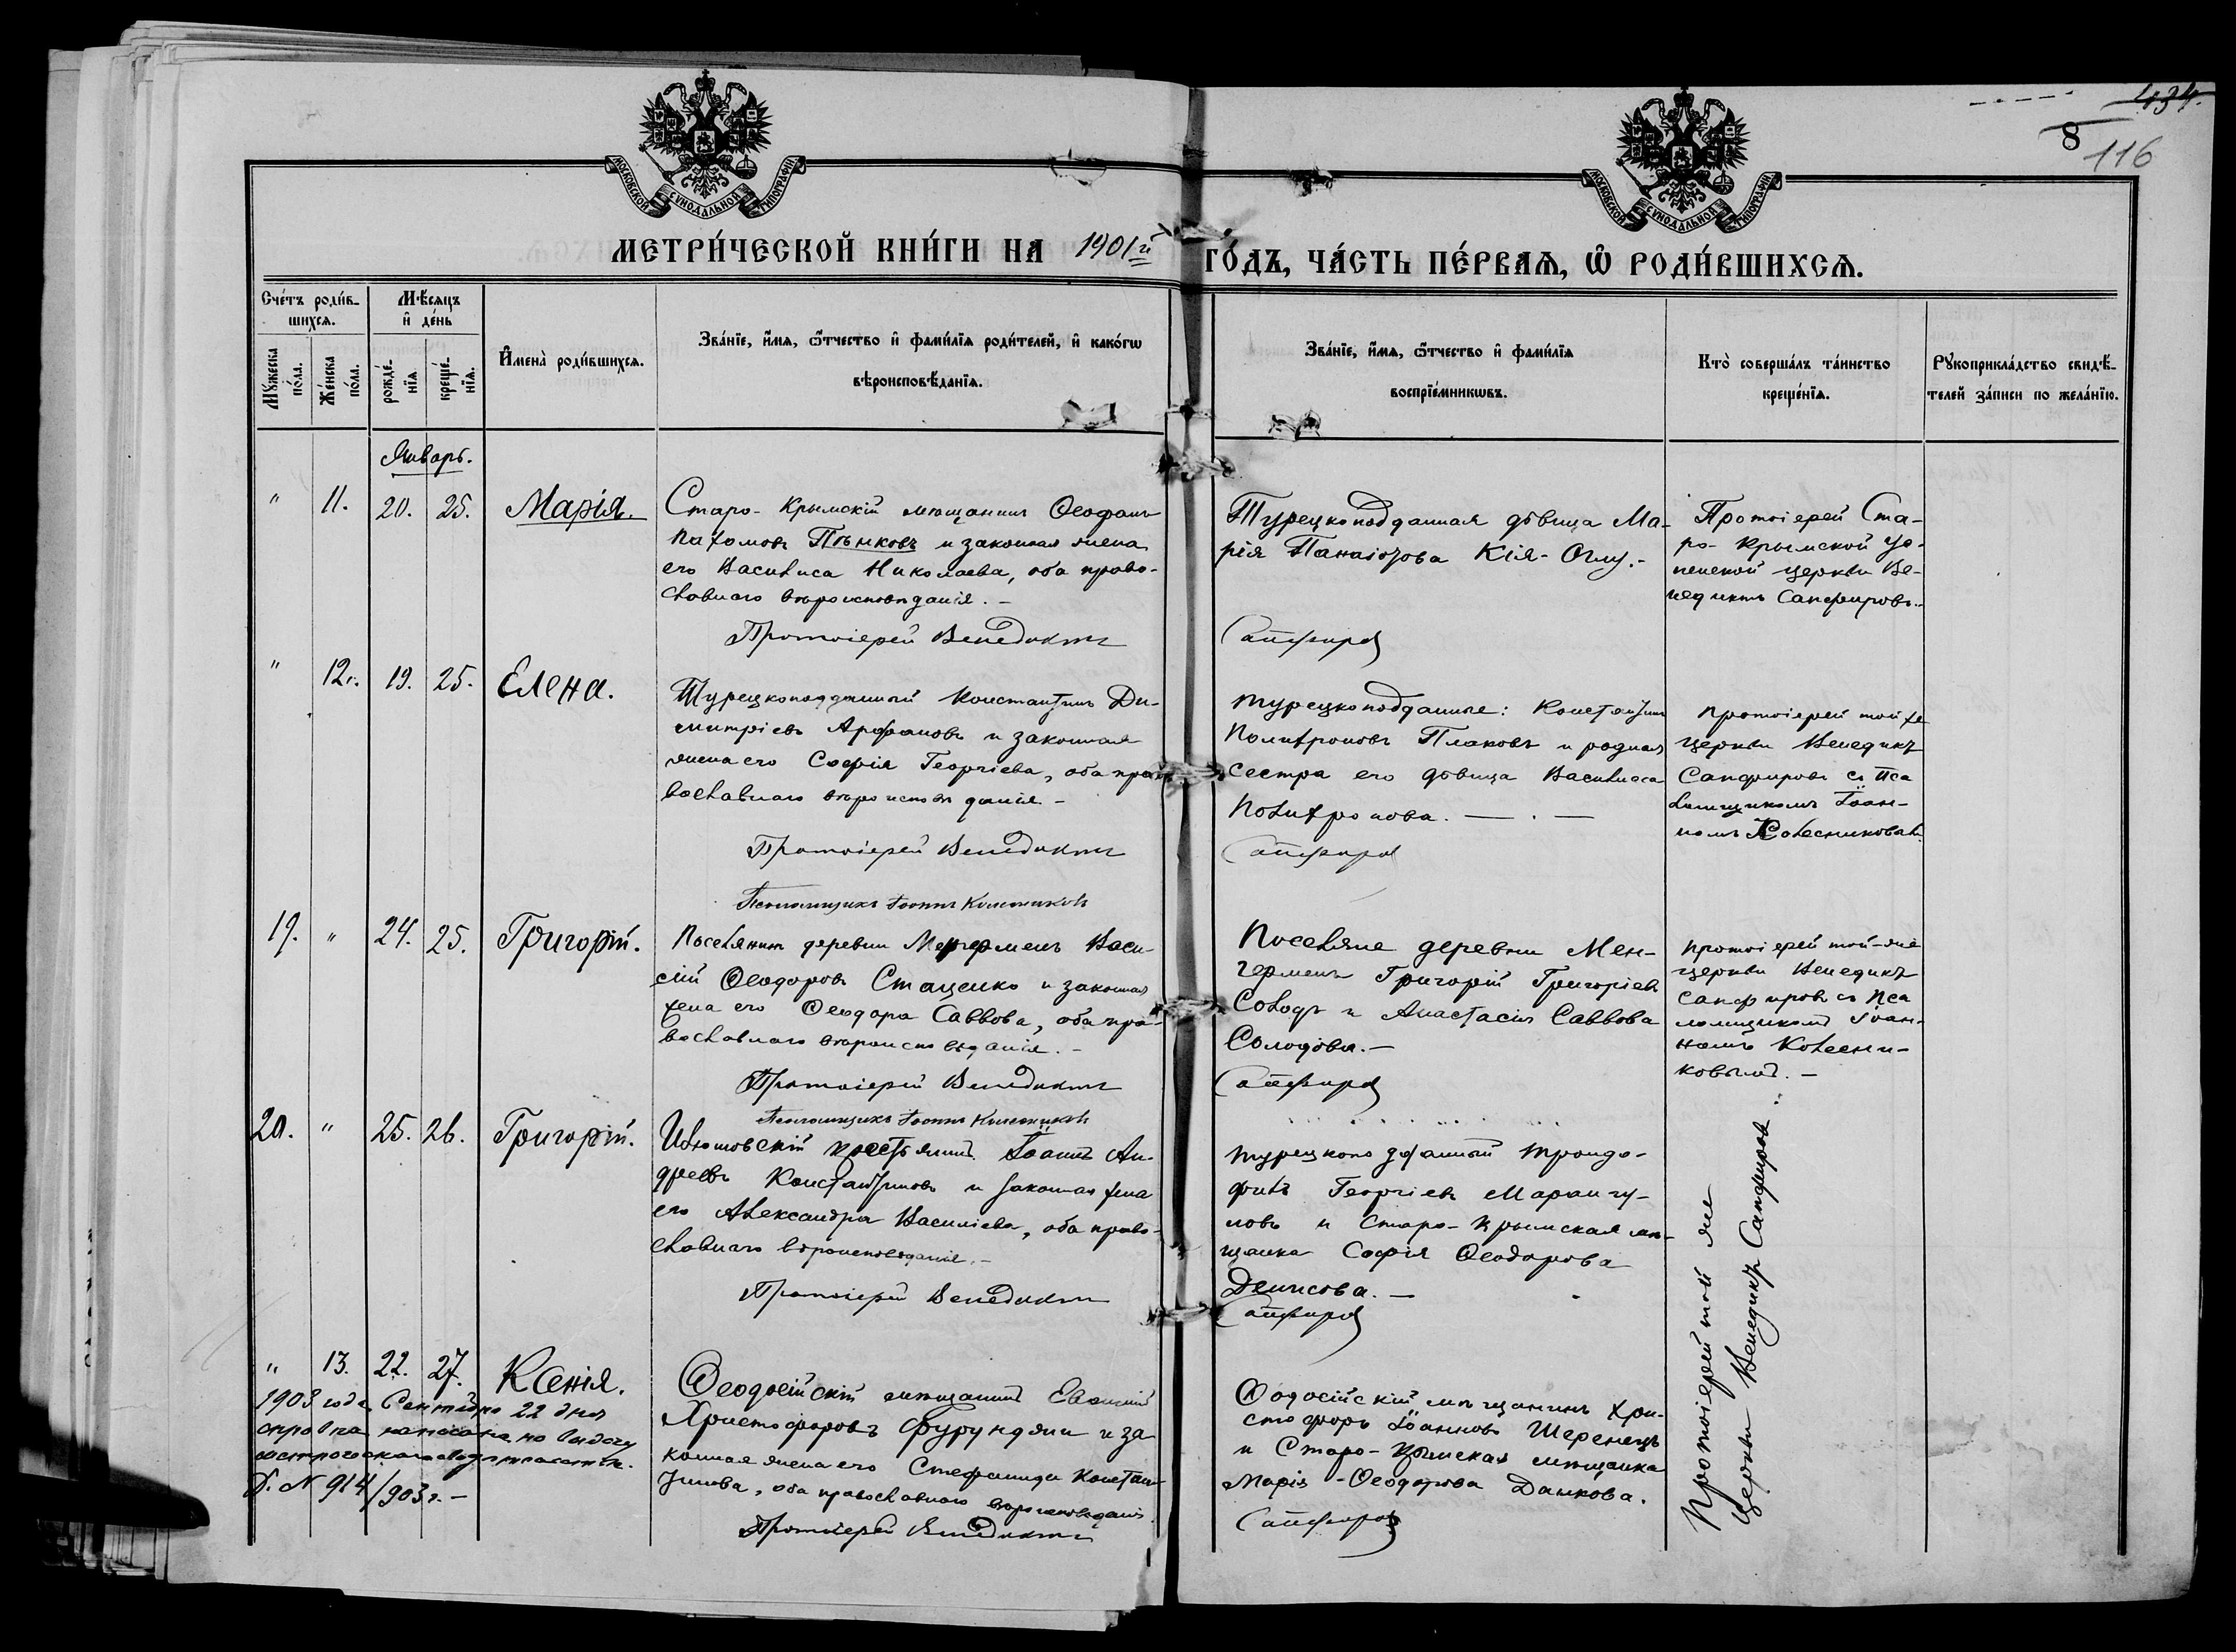 434.
8
116
МОСКОВСКОЙ СУНОДАЛЬНОЙ ТИПОГРАФІИ
МОСКОВСКОЙ СУНОДАЛЬНОЙ ТИПОГРАФІИ
МЕТРИ́ЧЕСКОЙ КНИ́ГИ НА 1901й ГО́ДЪ, ЧА́СТЬ ПЕ́РВАѦ, Ѡ҆ РОДИ́ВШИХСѦ.
Сче́тъ роди́в-
шихсѧ.
Мѣ́сяцъ
и҆ де́нь
Мꙋжеска
по́ла.
Же́нска
по́ла.
рожде́-
нїѧ
креще́-
нїѧ.
И҆мена̀ роди́вшихсѧ.
Зва́нїе, и҆́мѧ, ѻ҆́тчество и҆ фами́лїѧ роди́телей, и҆ како́гѡ
вѣроисповѣ́данїѧ.
Зва́нїе, и҆́мѧ, ѻ҆́тчество и҆ фами́лїѧ
воспрїе́мникѡвъ.
Кто̀ соверша́лъ та́инство
креще́нїѧ.
Рꙋкоприкла́дство свидѣ́-
телей за́писи по жела́нїю.
Январь.
" 11. 20. 25. Марія.
Старо-Крымскій мѣщанинъ Ѳеофанъ
Пахомовъ Пѣнковъ и законная жена
его Василиса Николаева, оба право-
славнаго вѣроисповѣданія. –
Протоіерей Венедиктъ
Турецкоподданная дѣвица Ма-
рія Панаіотова Кія-Оглу. –
Сапфировъ
Протоіерей Ста-
ро-Крымской Ус-
пенской церкви Ве-
недиктъ Сапфировъ.
" 12. 19. 25. Елена.
Турецкоподданный Константинъ Ди-
митріевъ Арфановъ и законная
жена его Софія Георгіева, оба пра-
вославнаго вѣроисповѣданія –
Протоіерей Венедиктъ
Псаломщикъ Іоаннъ Колесниковъ
Турецкоподданные: Константинъ
Полихроновъ Плаковъ и родная
сестра его дѣвица Василиса
Полихронова. – . –
Сапфировъ
Протоіерей той же
церкви Венедиктъ
Сапфировъ съ Пса
ломщикомъ Іоан-
номъ Колесниковым
19. " 24. 25. Григорій.
Поселянинъ деревни Менгерменъ Васи-
лій Ѳеодоровъ Стаценко и законная
жена его Ѳеодора Саввова, оба пра-
вославнаго вѣроисповѣданія. –
Протоіерей Венедиктъ
Псаломщикъ Іоаннъ Колесниковъ
Поселяне деревни Мен-
герменъ Григорій Григоріевъ
Солодъ и Анастасія Саввова
Солодова. –
Сапфировъ
Протоіерей той-же
церкви Венедиктъ
Сапфировъ съ Пса
ломщикомъ Іоан-
номъ Колесни-
ковымъ. –
20. " 25. 26. Григорій.
крестьянинъ Іоаннъ Ан-
дреевъ Константиновъ и законная жена
его Александра Василіева, оба право-
славнаго вѣроисповѣданія. –
Протоіерей Венедиктъ
Турецкоподданный Тронда-
филъ Георгіевъ Марангу-
ловъ и Старо-Крымская мѣ-
щанка Софія Ѳеодорова
Денисова. –
Сапфировъ
Протоіерей той же
церкви Венедиктъ Сапфировъ
" 13. 22. 27. Ксенія.
1903 года Сентября 22 дня
справка написана на выдачу
метрическаго свидѣтельства.
Д. № 914/903 г. –
Ѳеодосійскій мѣщанинъ
Христофоровъ Фурунджи и за
конная жена его Стефанида Констан
тинова, оба православнаго вѣроисповѣданія.
Протоіерей Венедиктъ
Ѳеодосійскій мѣщанинъ Хри-
стофоръ Іоанновъ Шеренецъ
и Старо-Крымская мѣщанка
Марія Ѳеодорова Дашкова.
Сапфировъ